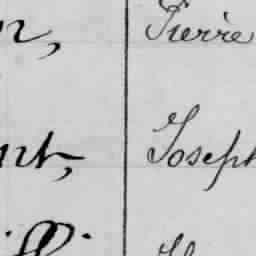 n, Pierre
nt, Joseph